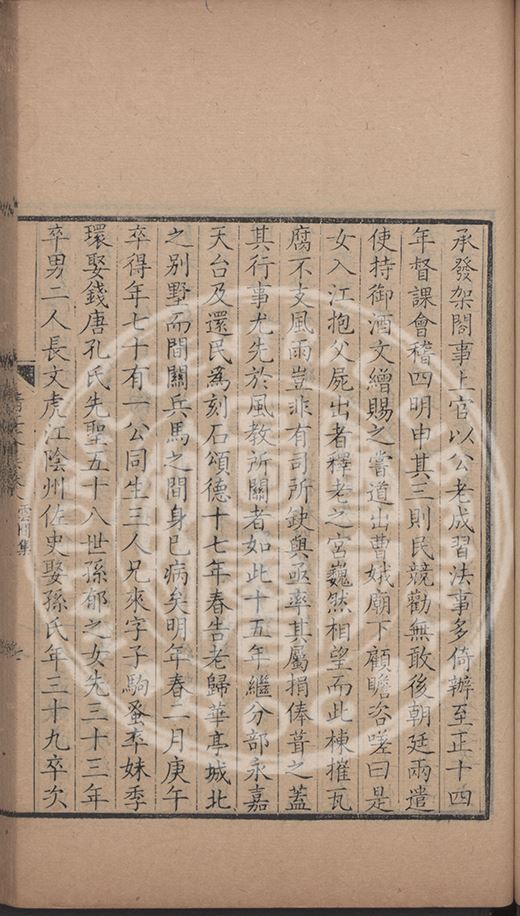 承發架閣事上官以公老成習法事多倚辦至正十四
年督課會稽四明申其三則民競勸無敢後朝廷兩遣
使持御酒文繒賜之嘗道出曹娥廟下顧瞻咨嗟曰是
女入江抱父屍出者釋老之宮巍然相望而此棟摧瓦
腐不支風雨豈非有司所缺與亟率其屬捐俸葺之蓋
其行事尤先於風教所關者如此十五年繼分部永嘉
天台及還民為刻石頌德十七年春告老歸華亭城北
之别墅而間關兵馬之間身已病矣明年春二月庚午
卒得年七十有一公同生三人兄來字子駒蚤卒妹季
環娶錢唐孔氏先聖五十八世孫郁之女先三十三年
卒男二人長文虎江陰州佐史娶孫氏年三十九卒次
卷八 雲間集